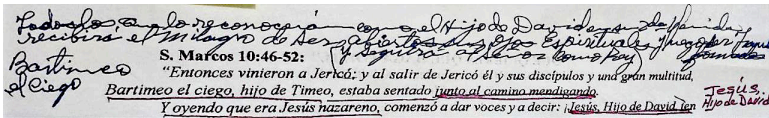 Todos los que lo reconocerán como el Hijo de David en su
recibirá el Milagro de Ser Abiertos sus ojos Espirituales, luego
Bartimeo
el Ciego
y seguirá a
S. Marcos 10:46-52:
“Entonces vinieron a Jericó; y al salir de Jericó él y sus discípulos y una gran multitud,
Bartimeo el ciego, hijo de Timeo, estaba sentado junto al camino mendigando.
Y oyendo que era Jesús nazareno, comenzó a dar voces y a decir: ¡Jesús, Hijo de David, ten
Jesús,
Hijo de David